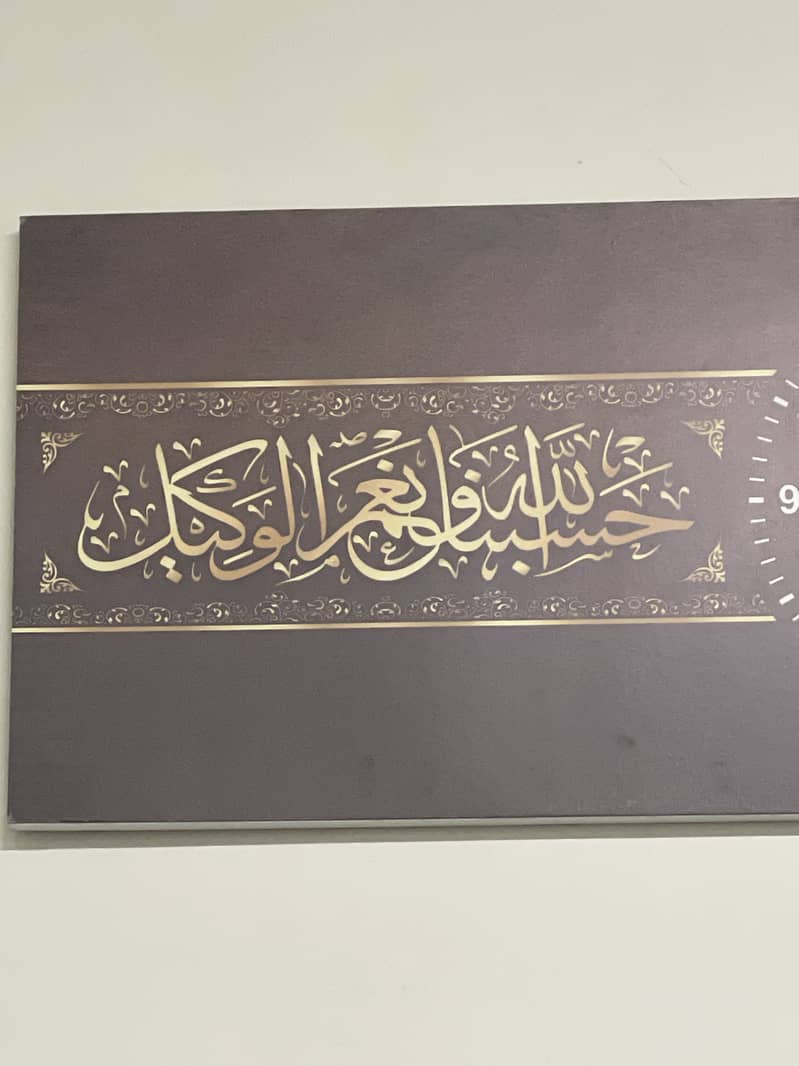 حسبنا الله ونعم الوكيل
9